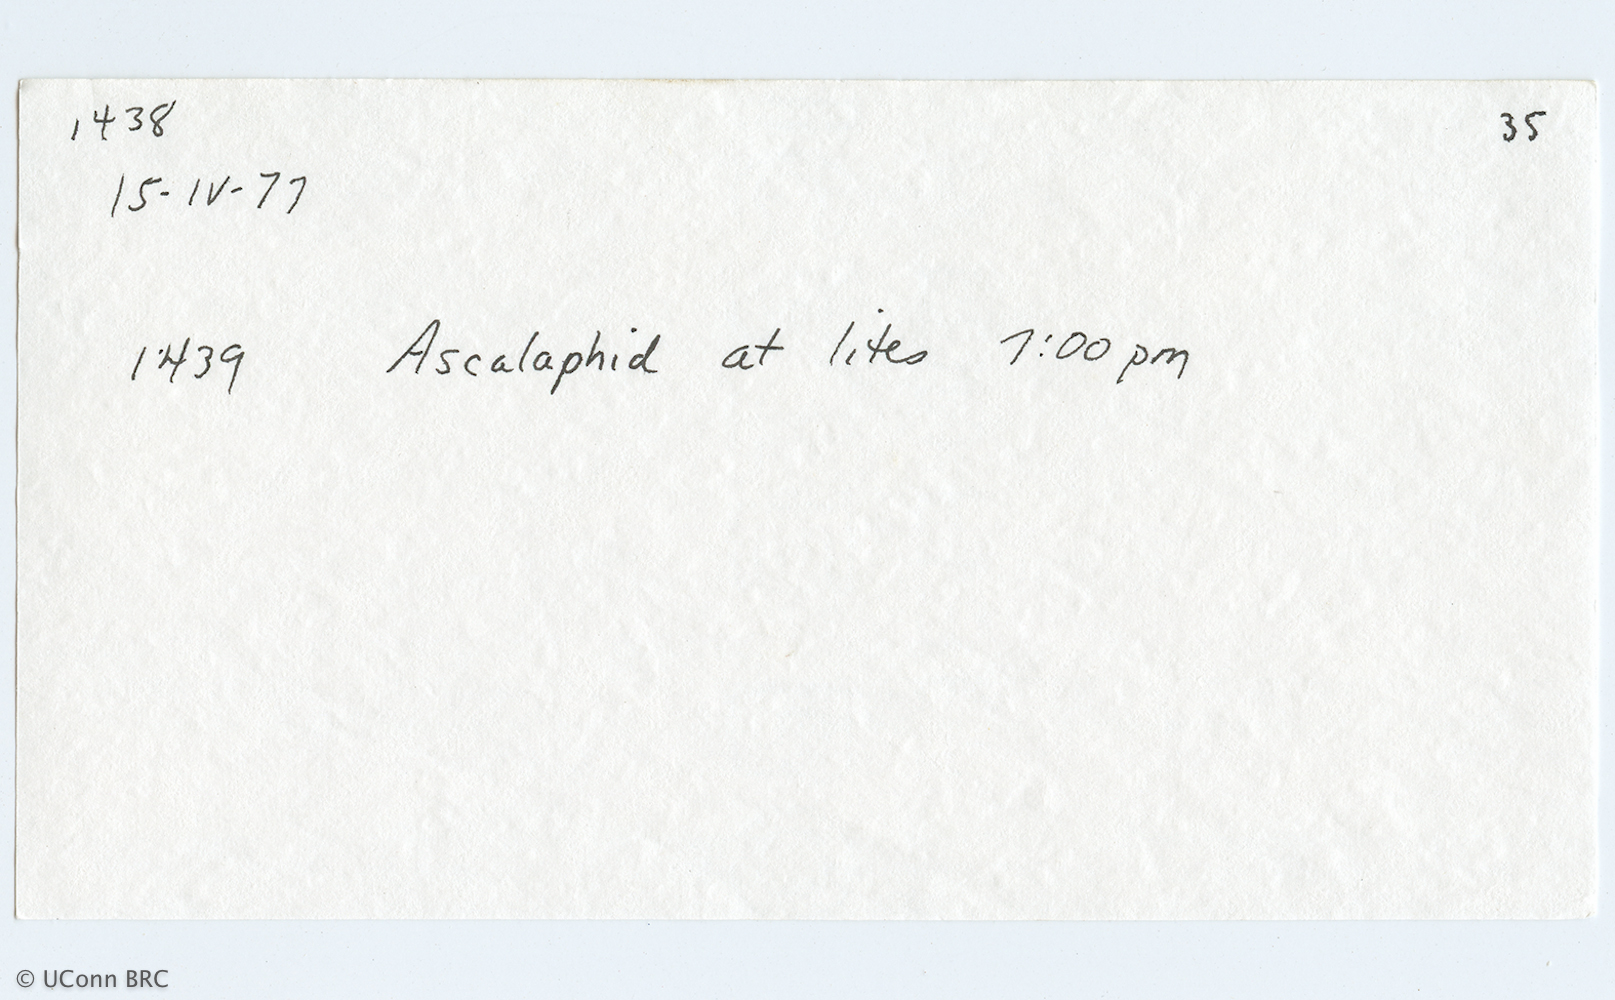 1438 35
15-IV-77
1439 Ascalaphid at lites 7:00 pm
© UConn BRC